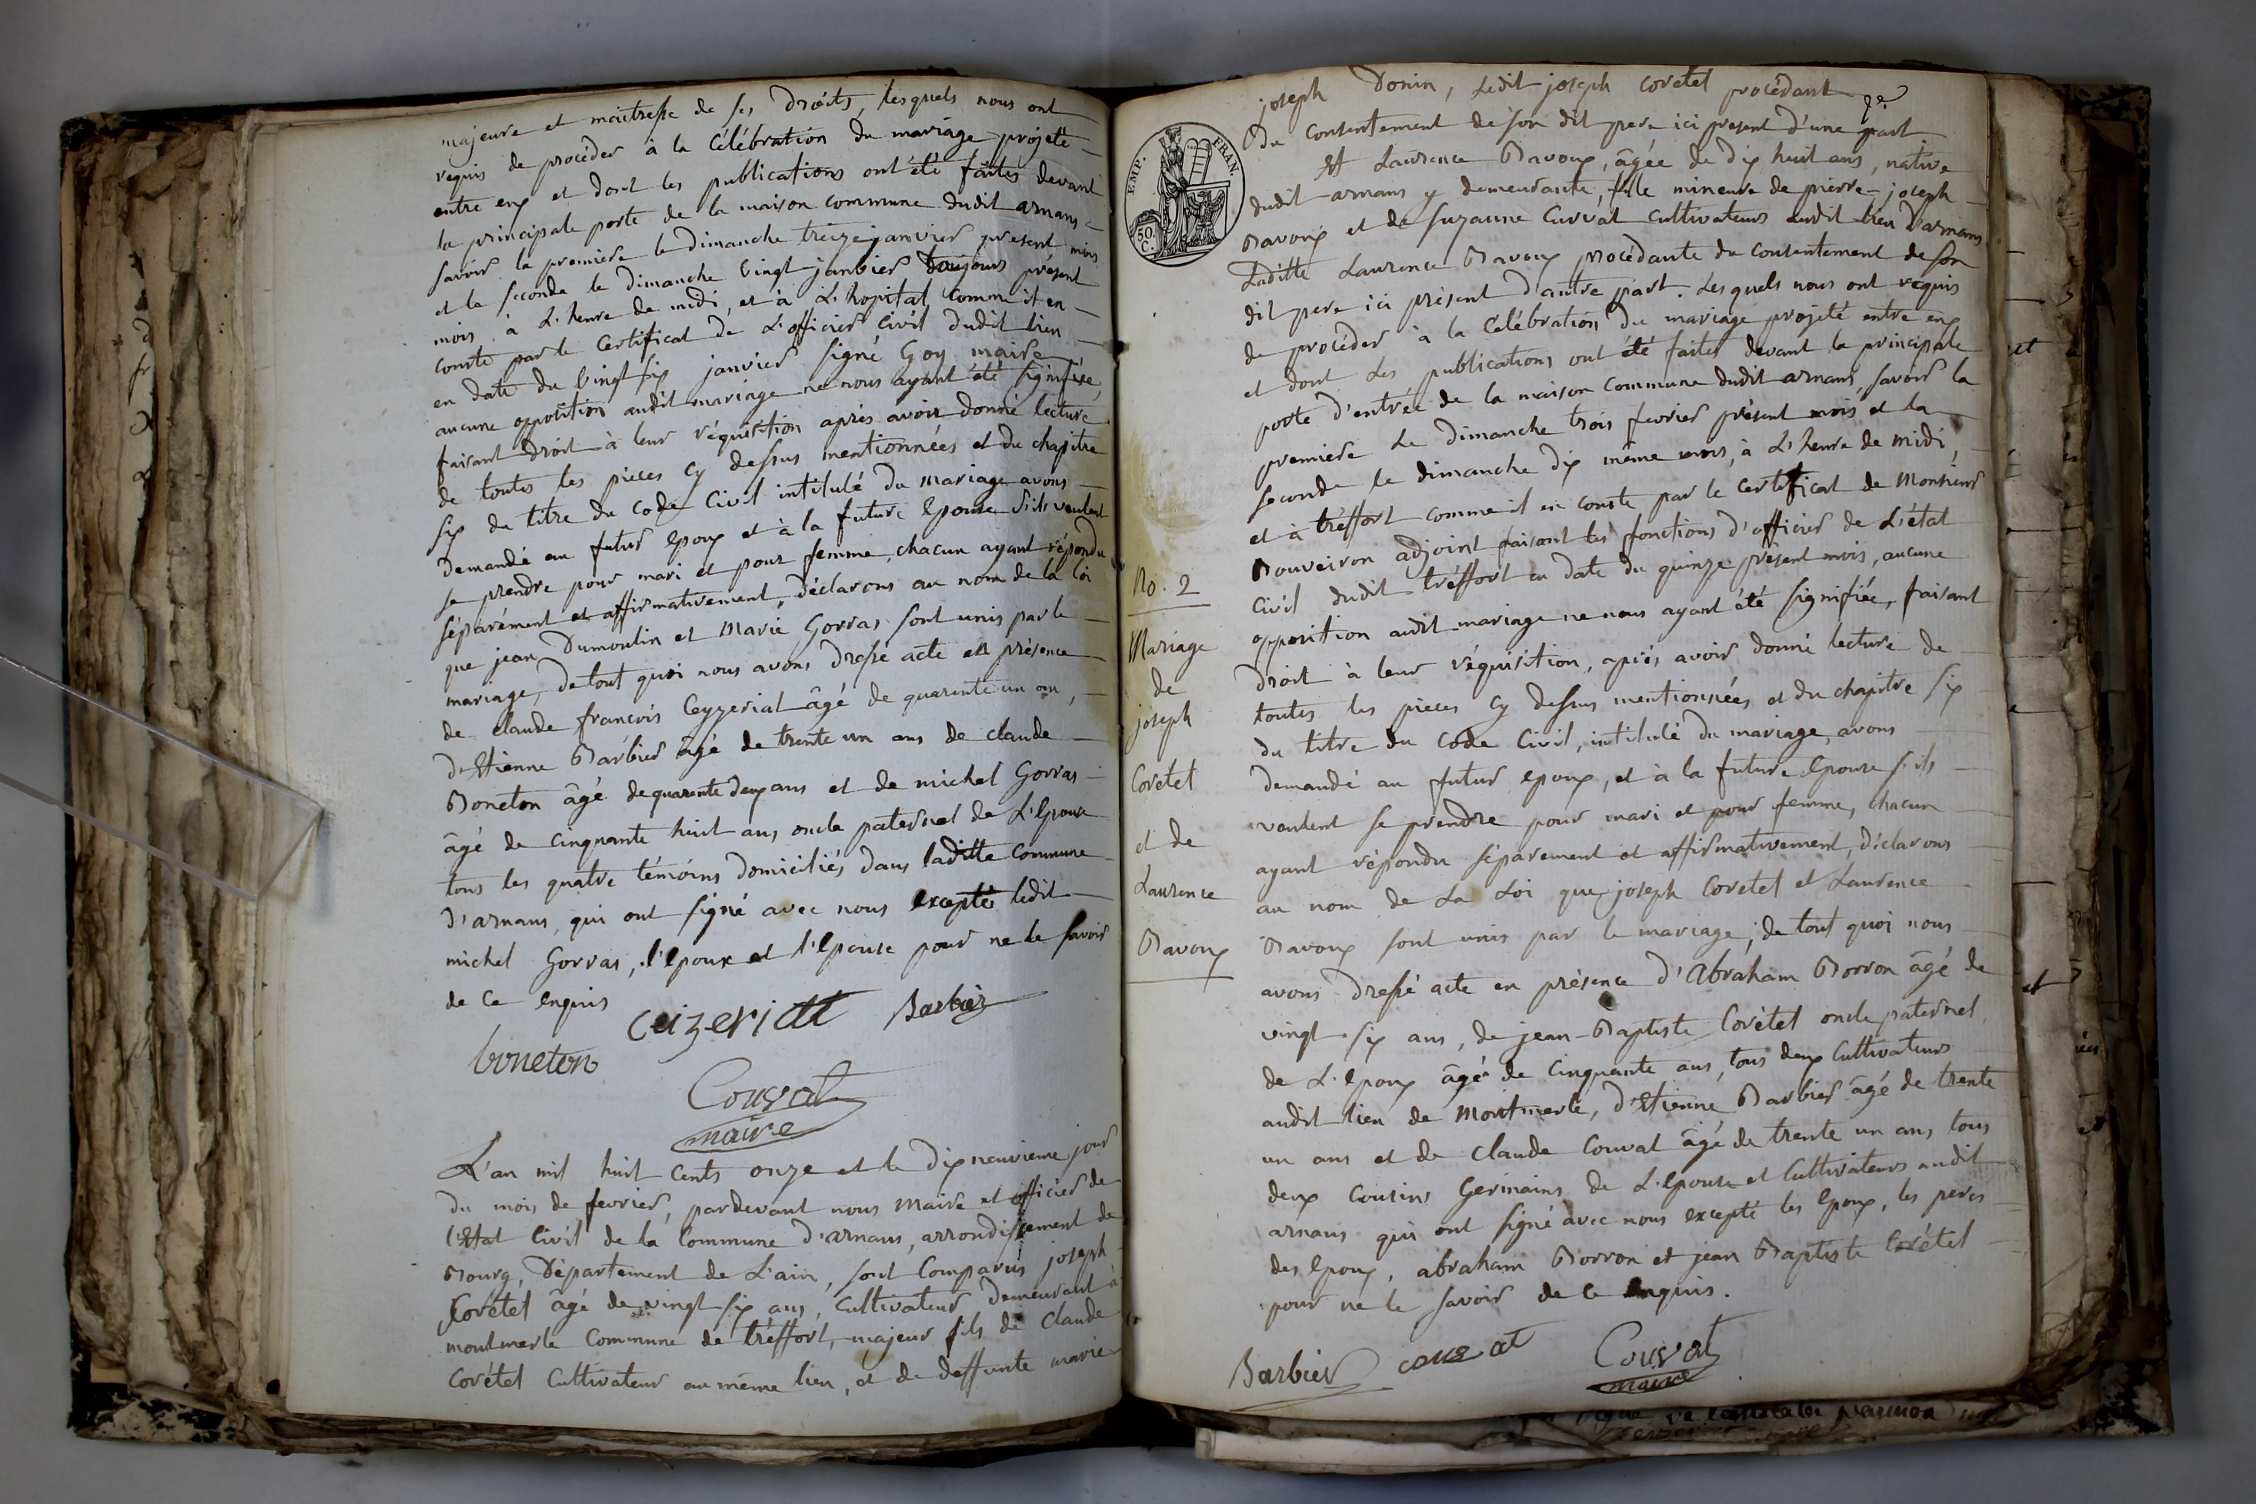 majeure et maitresse de ses droits, lesquels nous ont
requis de procéder à la Célébration du mariage projeté
entre eux et dont les publications ont été faites devant
la principale porte de la maison commune dudit arnans
savoir la premiere le dimanche treize janvier present mois
et la seconde le dimanche vingt janvier toujours présent
mois à L'heure de midi, et à L'hopital comme il en
conste par le Certificat de L'officier Civil dudit lieu
en date du vingt six janvier signé Goy maire,
aucune opposition audit mariage ne nous ayant été signifiée,
faisant droit à leur réquisition après avoir donné lecture
de toutes les pieces cy dessus mentionnées et du chapitre
six du titre du Code Civil intitulé du mariage avons
demandé au futur Epoux et à la future Epouse S'ils veulent
se prendre pour mari et pour femme, chacun ayant répondu
séparément et affirmativement, déclarons au nom de la loi
que jean Dumoulin et Marie Gorras sont unis par le
mariage, de tout quoi nous avons dressé acte en présence
de claude francois Ceyzeriat âgé de quarante un an,
d'Etienne Barbier âgé de trente un ans de claude
Boneton âgé de quarente deux ans et de michel Gorras
âgé de cinquante huit ans oncle paternel de L'Epouse
tous les quatre témoins domiciliés dans laditte commune
d'arnans, qui ont signé avec nous excepté ledit
michel Gorras, l'Epoux et l'Epouse pour ne le savoir
de Ce Enquis
Ceizeriat Barbier
boneton
Couvat
maire
L'an mil huit cents onze et le dix neuvieme jour
du mois de fevrier, pardevant nous maire et officier de
l'Etat Civil de la Commune d'arnans, arrondissement de
Bourg, Département de L'ain, sont Comparus joseph
Corétel âgé de vingt six ans, Cultivateur demeurant à
montmerle Commune de tréffort, majeur fils de Claude
Corétel Cultivateur au même lieu, et de deffunte marie
joseph Donin, Ledit joseph Corétel procédant
du Consentement de son dit pere ici present d'une part
EMP. FRAN.
50 C.
Et Laurence Bavoux, âgée de dix huit ans, native
dudit arnans y demeurante, fille mineure de pierre-joseph
Bavoux et de Suzanne Curvat Cultivateurs audit lieu D'arnans
Laditte Laurence Bavoux procédante du Consentement de son
dit pere ici présent D'autre part. Lesquels nous ont requis
de procéder à la Célébration du mariage projeté entre eux
et dont les publications ont été faites devant la principale
porte d'entrée de la maison Commune dudit arnans, savoir la
premiere Le Dimanche trois fevrier présent mois et la
seconde le dimanche dix même mois, à L'heure de midi,
et à tréffort comme il en conste par le certificat de Monsieur
Bouveiron adjoint faisant les fonctions d'officier de L'état
Civil dudit tréffort en date du quinze présent mois, aucune
opposition audit mariage ne nous ayant été signifiée, faisant
droit à leur réquisition, après avoir donné lecture de
toutes les pieces cy dessus mentionnées et du chapitre six
du titre du Code Civil, intitulé du mariage, avons
demandé au futur Epoux, et à la future Epouse s'ils
veulent se prendre pour mari et pour femme, chacun
ayant répondu séparement et affirmativement, déclarons
au nom de La Loi que joseph Corétel et Laurence
Bavoux sont unis par le mariage; de tout quoi nous
avons dressé acte en présence d'Abraham Borron âgé de
vingt six ans, de jean-Baptiste Corétel oncle paternel
de L'epoux âgé de Cinquante ans, tous deux Cultivateurs
audit lieu de montmerle, d'Etienne Barbier âgé de trente
un ans et de claude Couvat âgé de trente un ans tous
deux Cousins Germains de L'epouse et Cultivateurs audit
arnans qui ont signé avec nous excepté les Epoux, les peres
des Epoux, abraham Borron et jean Baptiste Corétel
pour ne le savoir de ce Enquis.
Barbier couvat Couvat
maire
No. 2
Mariage
de
joseph
Corétel
et de
Laurence
Bavoux